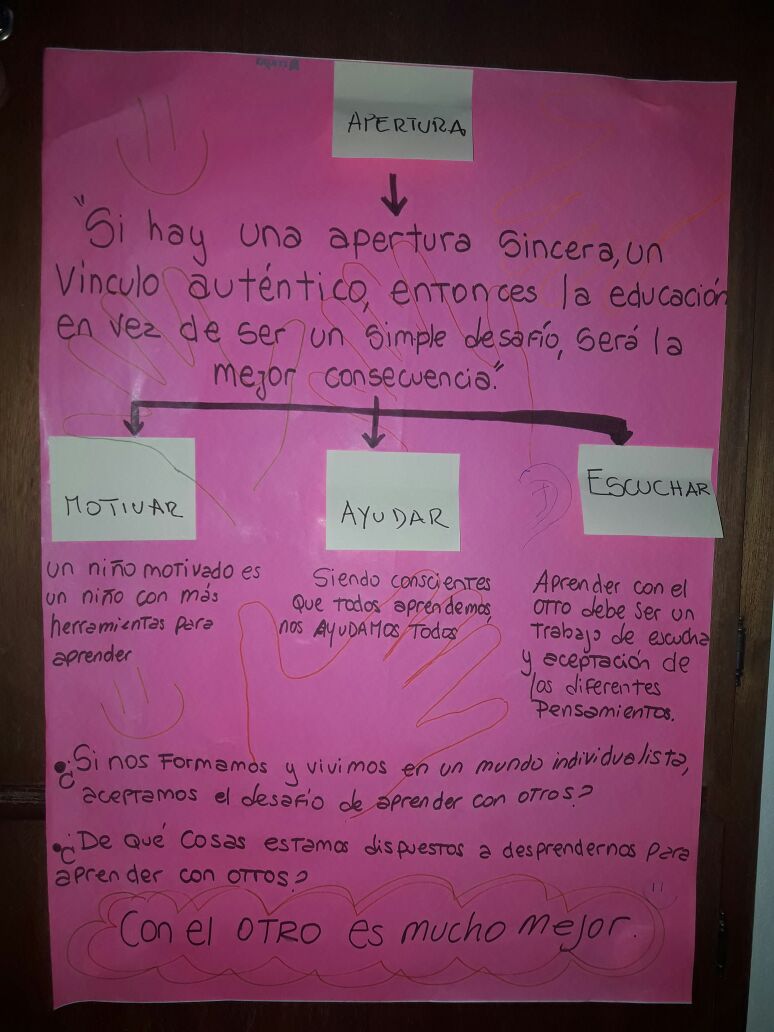 APERTURA
"Si hay una apertura sincera, un
vinculo auténtico, entonces la educación
en vez de ser un simple desafío, será la
mejor consecuencia."
MOTIVAR
AYUDAR
ESCUCHAR
un niño motivado es
un niño con más
herramientas para
aprender
Siendo conscientes
que todos aprendemos,
nos AYUDAMOS Todos
Aprender con el
otro debe ser un
trabajo de escucha
y aceptación de
los diferentes
pensamientos.
• ¿Si nos formamos y vivimos en un mundo individualista,
aceptamos el desafío de aprender con otros?
• ¿De qué cosas estamos dispuestos a desprendernos para
aprender con otros?
Con el OTRO es mucho mejor.